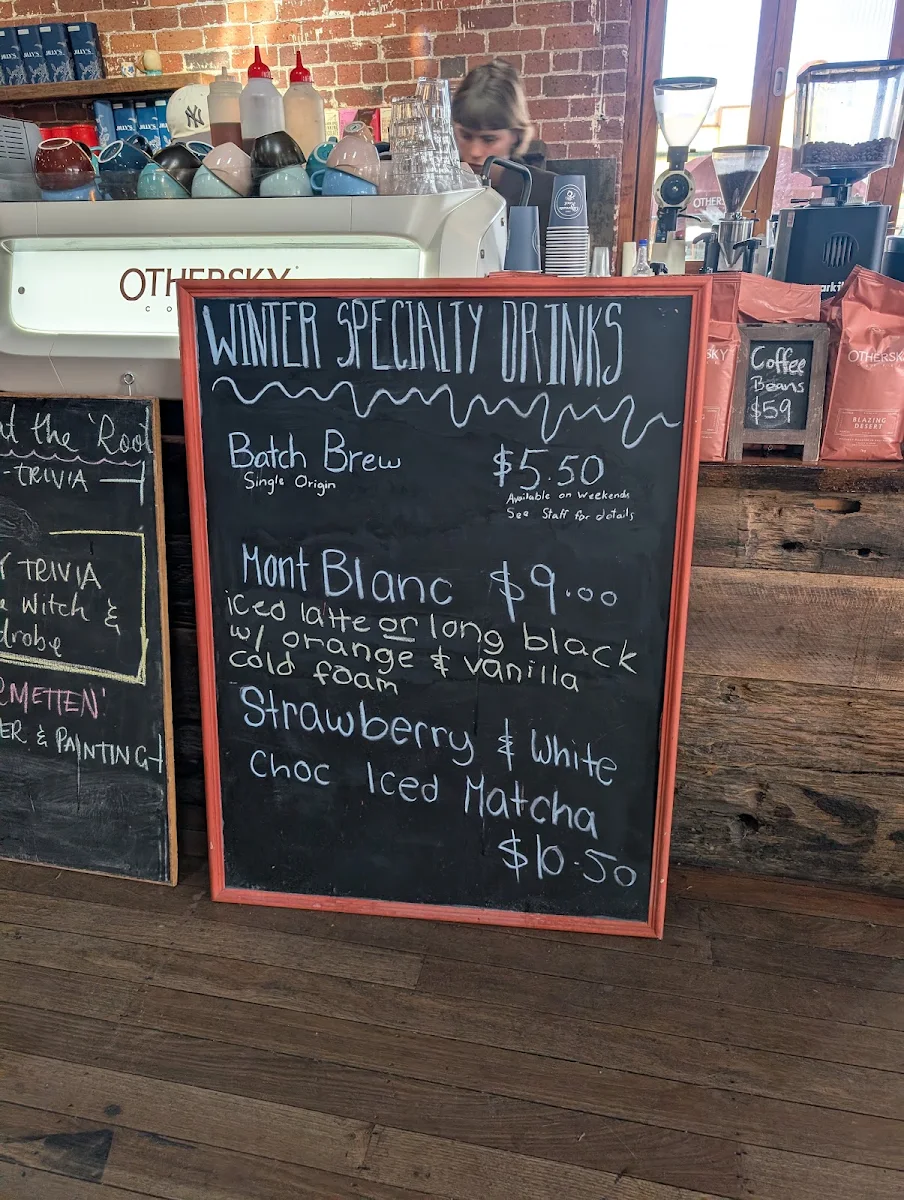 OTHERSKY
WINTER SPECIALTY DRINKS
Batch Brew $5.50
Single Origin
Available on weekends
See Staff for details
Mont Blanc $9.00
iced latte or long black
w/ orange & vanilla
cold foam
Strawberry & White
Choc Iced Matcha
$10.50
at the 'Roo
- TRIVIA
TRIVIA
Witch &
drobe
METTEN'
ER & PAINTING
Coffee
Beans
$59
SKY
OTHERSK
BLAZING
DESERT
OTHER
arki
NY